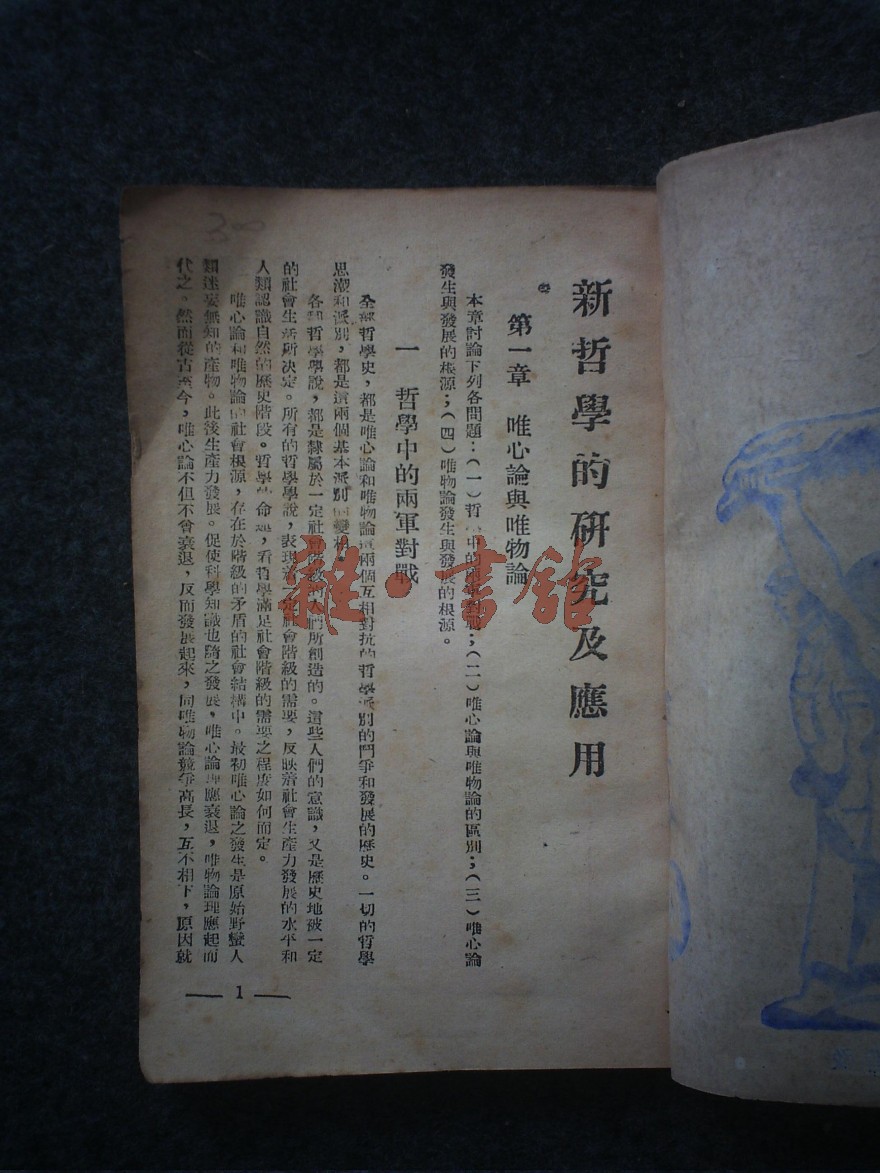 新哲學的研究及應用
第一章 唯心論與唯物論
本章討論下列各問題:(一)哲 中的兩軍對戰;(二)唯心論與唯物論的區別;(三)唯心論
發生與發展的根源;(四)唯物論發生與發展的根源。
一 哲學中的兩軍對戰
全部哲學史,都是唯心論和唯物論這兩個互相對抗的哲學派別的鬥爭和發展的歷史。一切的哲學
思潮和派別,都是這兩個基本派別的變相。
各種哲學學說,都是隸屬於一定社會階級的人們所創造的。這些人們的意識,又是歷史地被一定
的社會生活所決定。所有的哲學學說,表現着一定社會階級的需要,反映着社會生產力發展的水平和
人類認識自然的歷史階段。哲學的命運,看哲學滿足社會階級的需要之程度如何而定。
唯心論和唯物論的社會根源,存在於階級的矛盾的社會結構中。最初唯心論之發生是原始野蠻人
類迷妄無知的產物。此後生產力發展。促使科學知識也隨之發展,唯心論理應衰退,唯物論理應起而
代之。然而從古至今,唯心論不但不曾衰退,反而發展起來,同唯物論競爭高長,互不相下,原因就
— 1 —
300
雜·書館